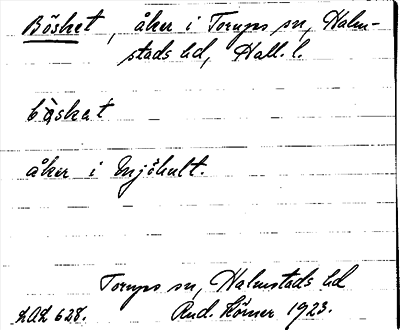 Bösket, åker i Torups sn, Halm-
stads hd, Hall. l.
bàskat
åker i Mjöhult.
Torups sn, Halmstads hd
LAL 628. Rud. Hörner 1923.